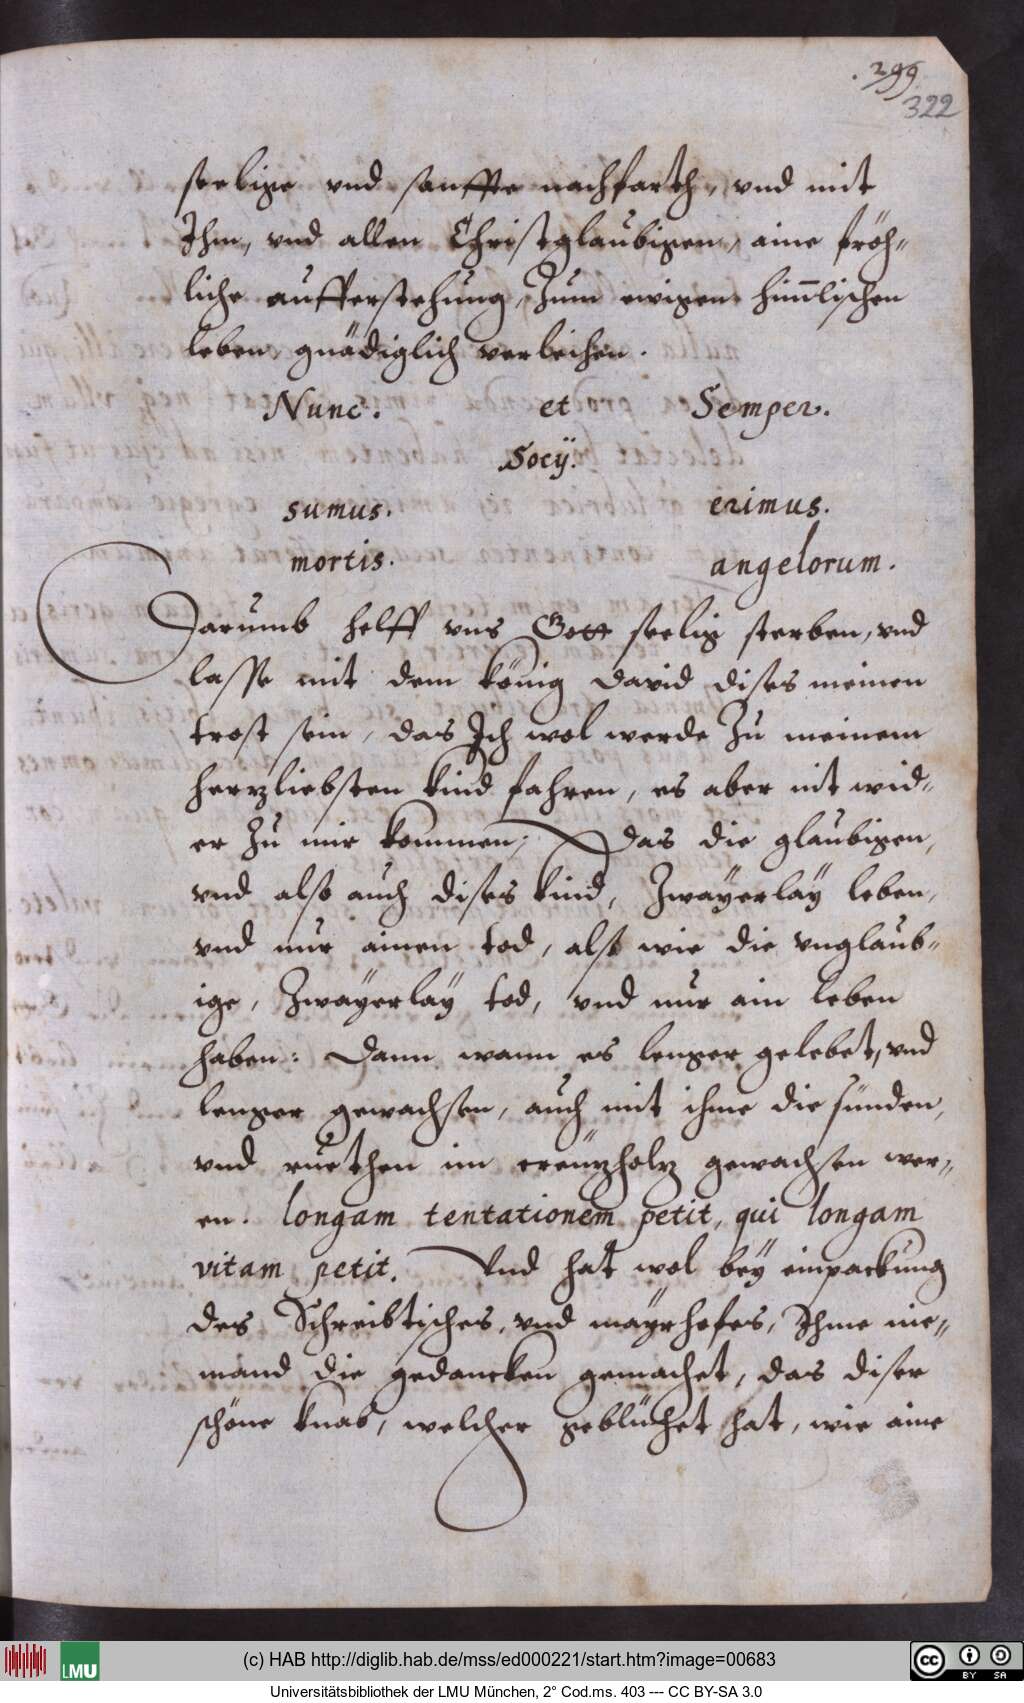 . 299
322
seelige vnd sanffte nachfarth, vnd mit
Ihm, vnd allen Christglaubigen, aine fröh-
liche aufferstehung, Zum ewigen him̅lischen
leben, gnädiglich verleihen.
Nunc. et Semper.
Socÿ.
sumus. erimus.
mortis. angelorum.
Darumb helff vns Gott seelig sterben, vnd
lasse mit dem könig David dises meinen
trost sein, das Ich wol werde Zu meinem
herzliebsten kind fahren, es aber nit wid-
er Zu mir kommen; Das die glaubigen,
vnd also auch dises kind, Zwayerlaÿ leben,
vnd nur ainen tod, alß wie die vnglaub-
ige, Zwayerlaÿ tod, vnd nur ain leben
haben: Dann wann es lenger gelebet, vnd
lenger gewachsen, auch mit ihme die sünden,
vnd ruethen im creüzholz gewachsen wer-
en. longam tentationem petit, qui longam
vitam petit. Vnd hat wol beÿ einpackung
des Schreibtisches, vnd maÿrhofes, Ihme nie-
mand die gedancken gemachet, das diser
schöne knab, welcher geblüehet hat, wie aine
(c) HAB http://diglib.hab.de/mss/ed000221/start.htm?image=00683
LMU
cc BY SA
Universitätsbibliothek der LMU München, 2° Cod.ms. 403 --- CC BY-SA 3.0